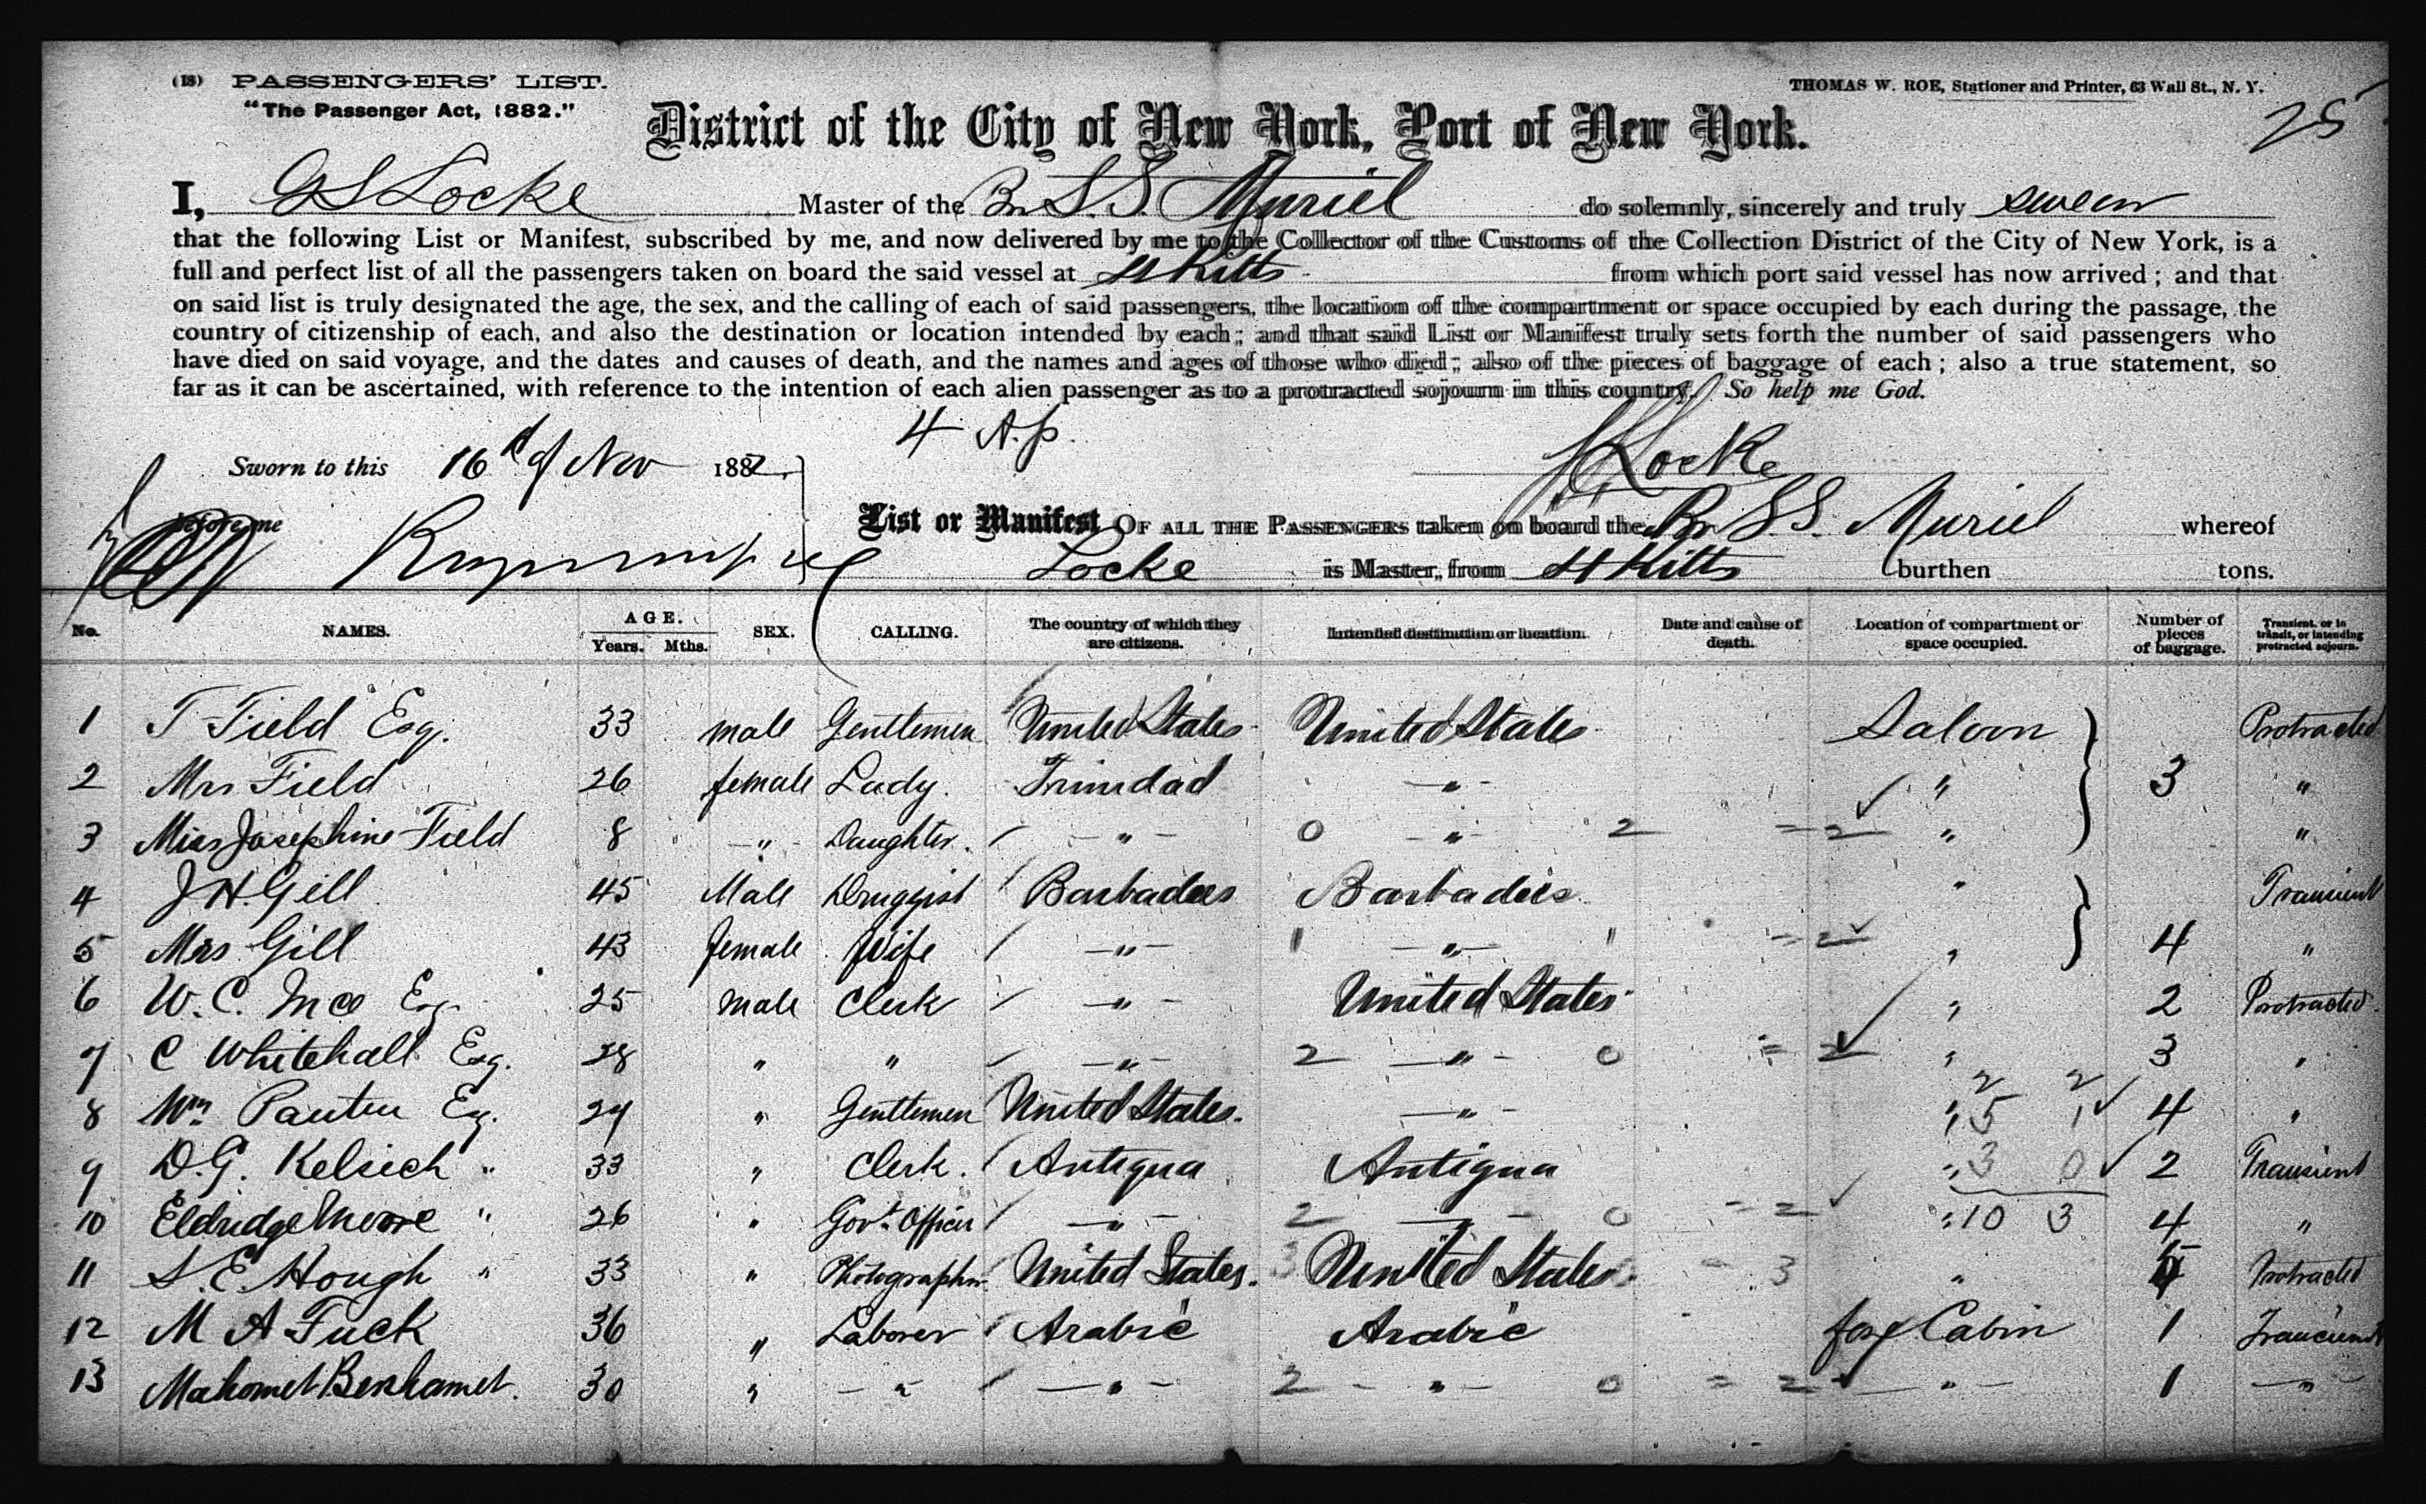 (18) PASSENGERS' LIST.
THOMAS W. ROE, Stationer and Printer, 63 Wall St., N. Y.
"The Passenger Act, 1882."
25
District of the City of New York, Port of New York.
I, GS Locke Master of the Br S.S. Muriel do solemnly, sincerely and truly swear
that the following List or Manifest, subscribed by me, and now delivered by me to the Collector of the Customs of the Collection District of the City of New York, is a
full and perfect list of all the passengers taken on board the said vessel at St Kitts from which port said vessel has now arrived; and that
on said list is truly designated the age, the sex, and the calling of each of said passengers, the location of the compartment or space occupied by each during the passage, the
country of citizenship of each, and also the destination or location intended by each; and that said List or Manifest truly sets forth the number of said passengers who
have died on said voyage, and the dates and causes of death, and the names and ages of those who died; also of the pieces of baggage of each; also a true statement, so
far as it can be ascertained, with reference to the intention of each alien passenger as to a protracted sojourn in this country. So help me God.
4 A.p.
Sworn to this 16th of Nov 1882, GS Locke
before me
List or Manifest OF ALL THE PASSENGERS taken on board the Br S.S. Muriel whereof
Locke is Master, from St Kitts burthen tons.
No. NAMES. AGE. Years. Mths. SEX. CALLING. The country of which they are citizens. Intended destination or location. Date and cause of death. Location of compartment or space occupied. Number of pieces of baggage. Transient, or in transit, or intending protracted sojourn.
1 T Field Esq. 33 male Gentlemen United States United States Saloon Protracted
2 Mrs Field 26 female Lady. Trinidad " " 3 "
3 Miss Josephine Field 8 " Daughter. " 0 " 2 = 2 " "
4 J H. Gill 45 Male Druggist Barbadoes Barbadoes " Transient
5 Mrs Gill 43 female Wife " 1 " 1 = 2 " 4 "
6 W. C. Ince Esq. 25 male Clerk " United States " 2 Protracted
7 C Whitehall Esq. 28 " " " 2 " 0 = 2 " 3 "
2 2
8 Wm Panten Esq. 29 " Gentlemen United States. " " 5 1 4 "
9 D. G. Kelsick " 33 " Clerk. Antigua Antigua " 3 0 2 Transient
10 Eldridge Moore " 26 " Govt Officer " 2 " 0 = 2 " 10 3 4 "
11 S. E. Hough " 33 " Photographer United States. 3 United States. = 3 " 5 Protracted
12 M A Tuck 36 " Laborer Arabic Arabic fore Cabin 1 Trancient
13 Mahomet Benhamet. 30 " " " 2 " 0 = 2 " 1 "